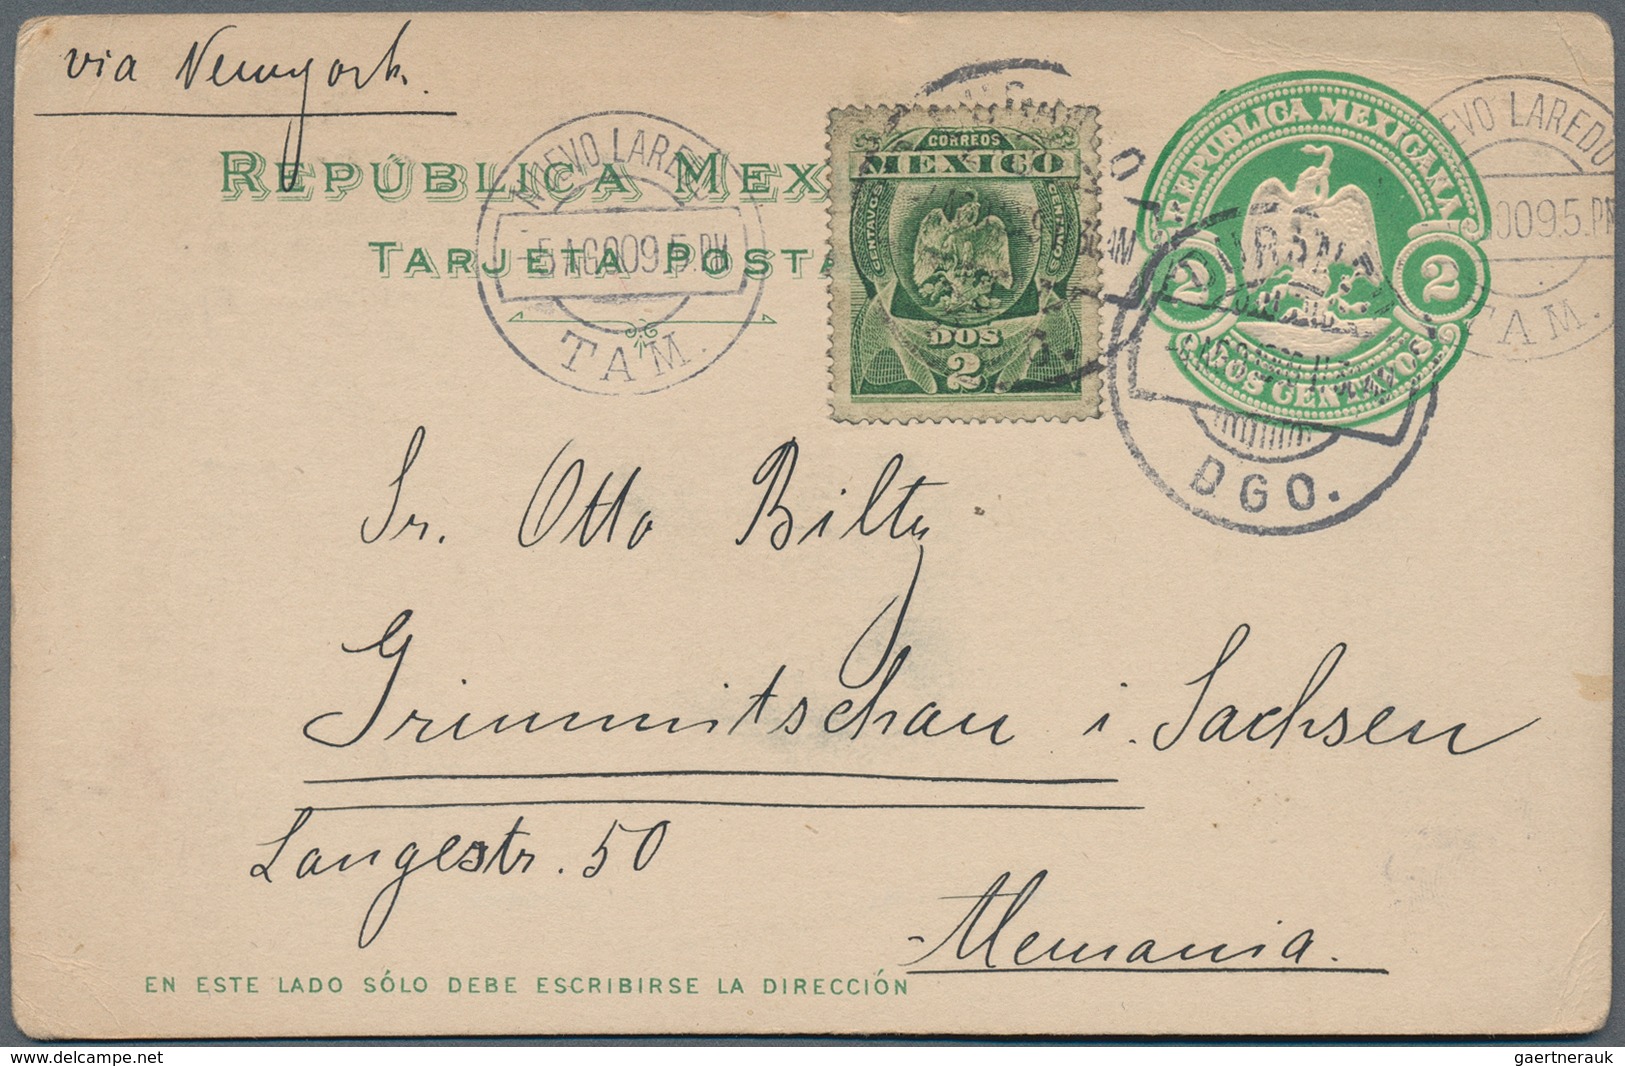 via Newyork.
REPÚBLICA MEX
TARJETA POSTA
NUEVO LAREDO
5 AGO 09 5.PM
TAM.
CORREOS
MEXICO
CENTAVOS
CENTAVOS
DOS
2
REPUBLICA MEXICANA
2
2
DOS CENTAVOS
EVO LAREDO
009 5.PM
TAM.
DGO.
Sr. Otto Bilty
Grimmitschau i. Sachsen
Langestr. 50
Alemania.
EN ESTE LADO SÓLO DEBE ESCRIBIRSE LA DIRECCIÓN
www.delcampe.net
gaertnerauk